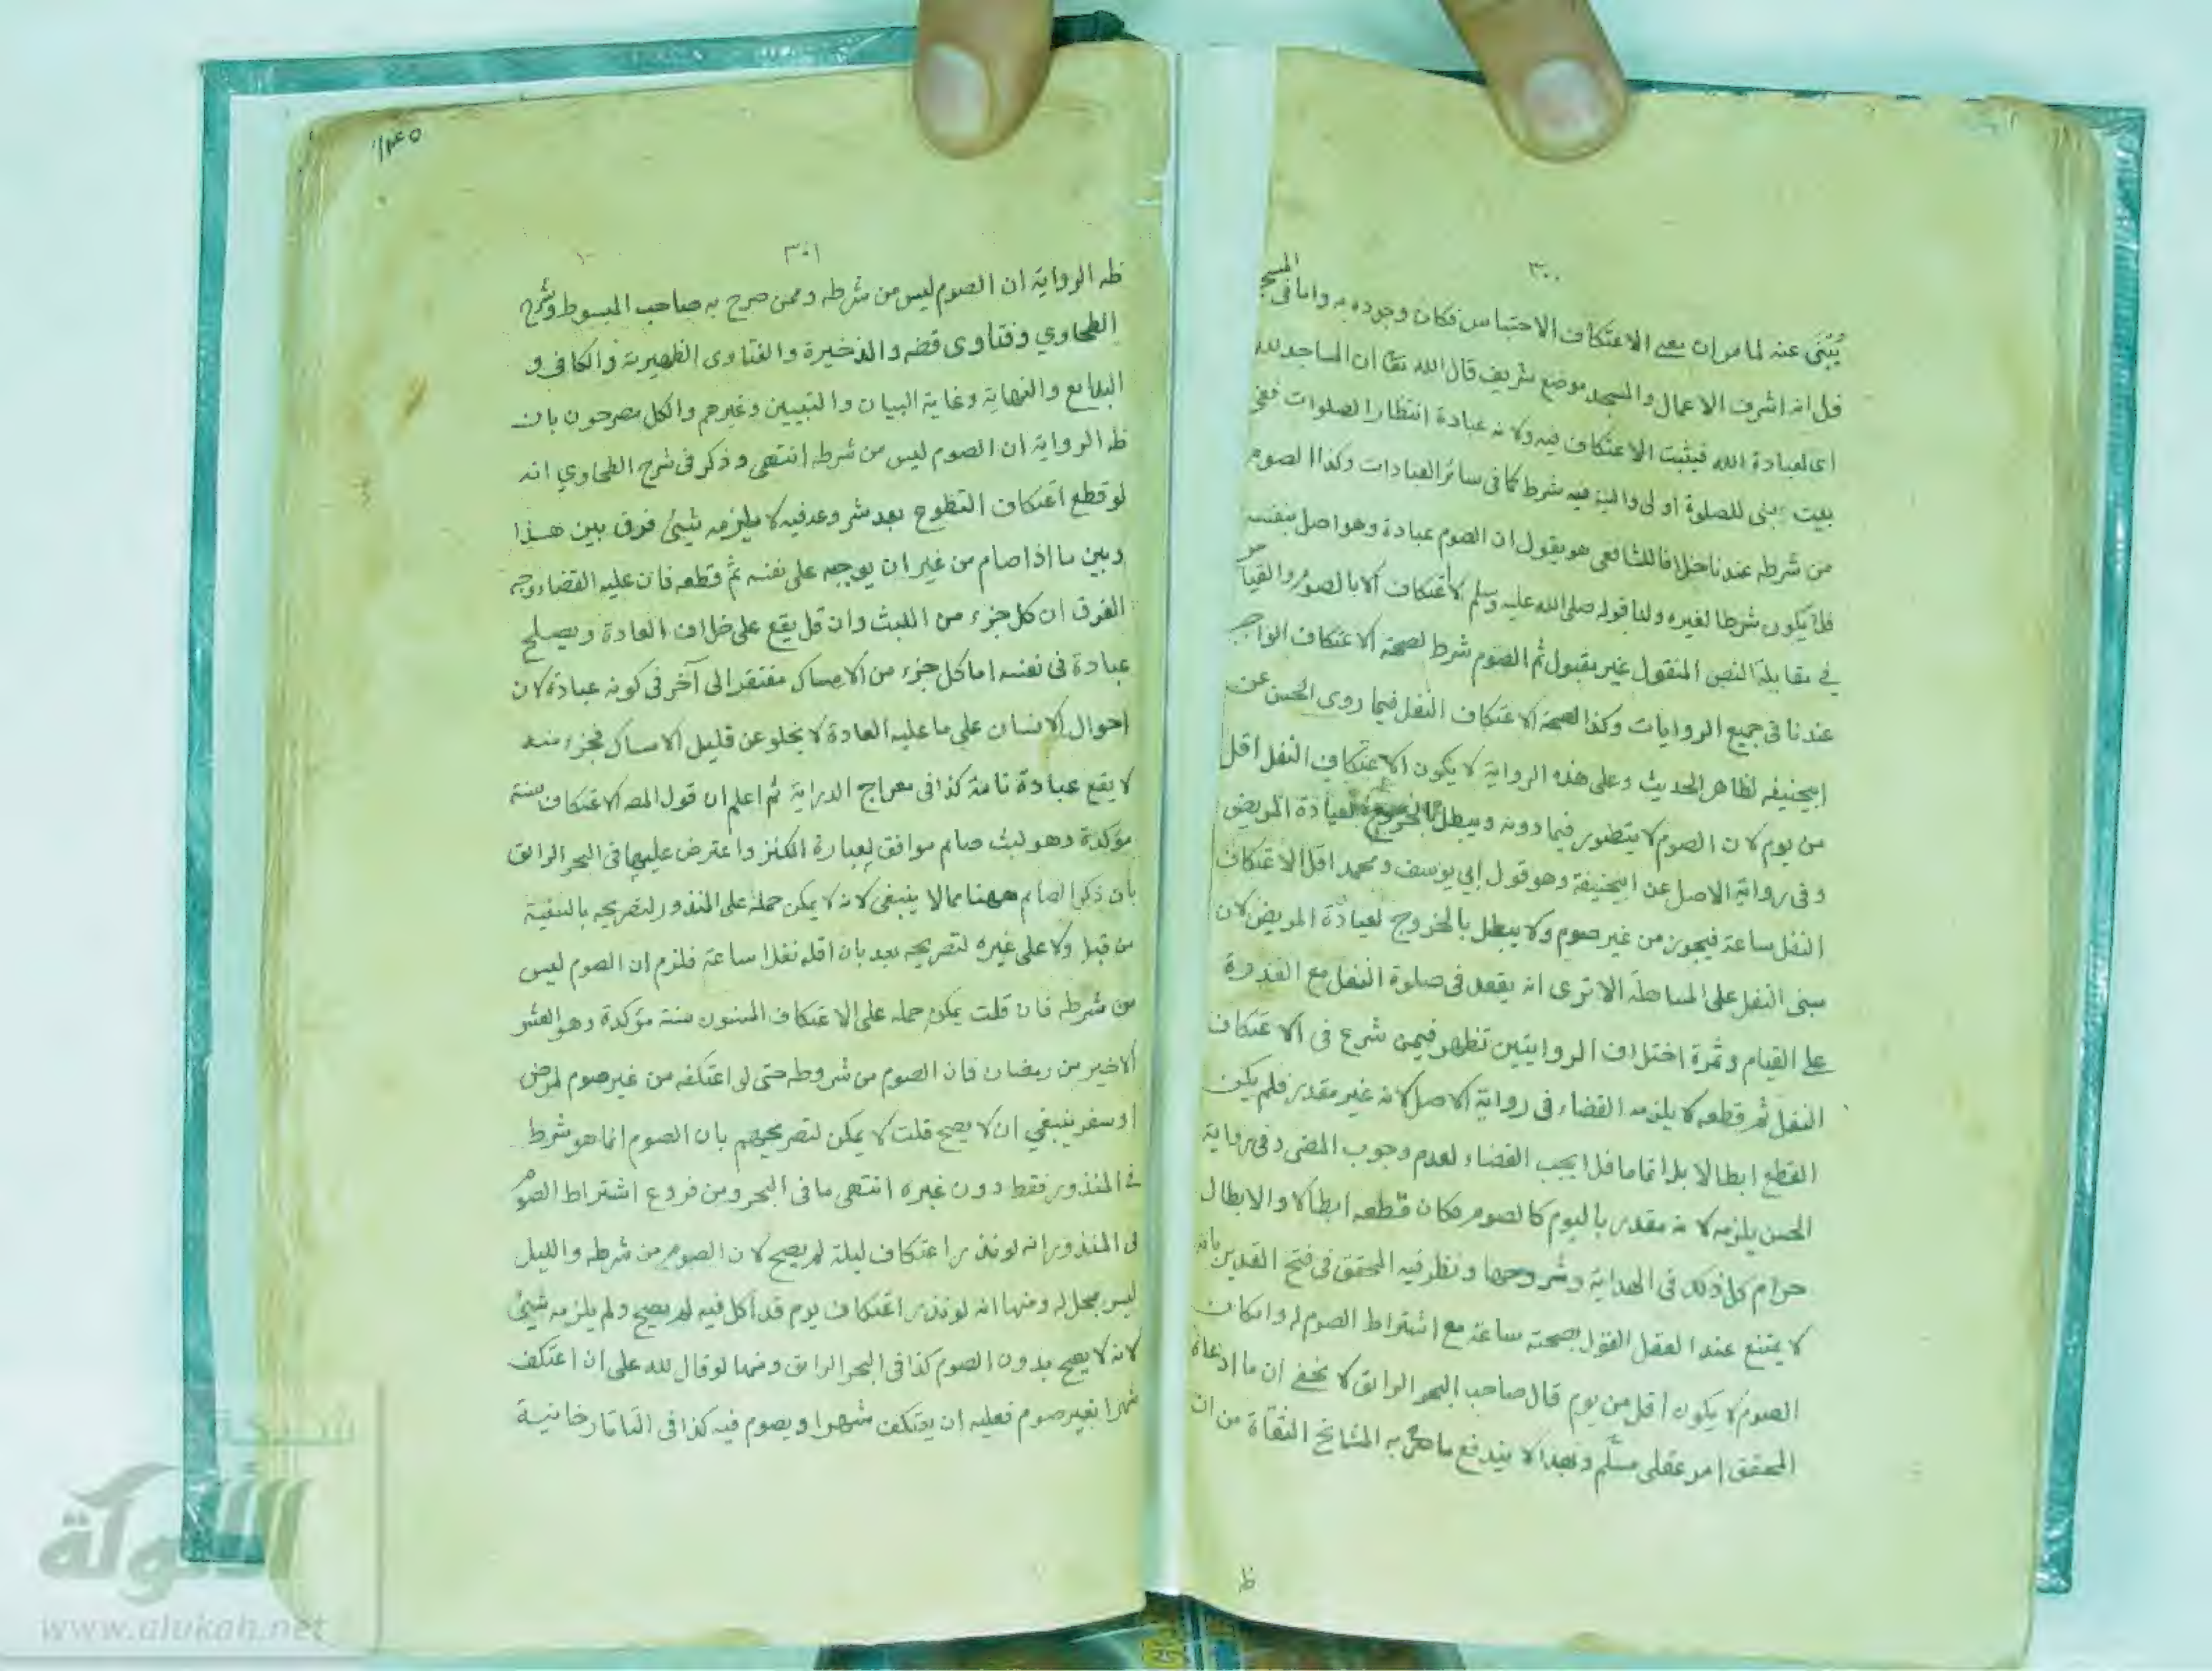 ٣٠٠
يُبْنَى عنه لما مر ان معنى الاعتكاف الاحتباس فكان وجوده به واما فى المسجد
فلانه اشرف الاعمال والمسجد موضع شريف قال الله تعا ان المساجد لله
اى لعبادة الله فيثبت الاعتكاف فيه ولانه عبادة انتظار الصلوات ففى
بيت بنى للصلوة اولى والنية فيه شرط كما فى سائر العبادات وكذا الصوم
من شرطه عندنا خلافا للشافعى هو يقول ان الصوم عبادة وهو اصل بنفسه
فلا يكون شرطا لغيره ولنا قوله صلى الله عليه وسلم لا اعتكاف الا بالصوم والقياس
في مقابلة النص المنقول غير مقبول ثم الصوم شرط لصحة الاعتكاف الواجب
عندنا فى جميع الروايات وكذا لصحة الاعتكاف النفل فيما روى الحسن عن
ابيحنيفه لظاهر الحديث وعلى هذه الرواية لا يكون الاعتكاف النفل اقل
من يوم لان الصوم لا يتصور فيما دونه ويبطل بالخروج لعيادة المريض
وفى رواية الاصل عن ابيحنيفة وهو قول ابي يوسف ومحمد اقل الاعتكاف
النفل ساعة فيجوز من غير صوم ولا يبطل بالخروج لعيادة المريض لان
مبنى النفل على المساهلة الا ترى انه يقعد فى صلوة النفل مع القدرة
على القيام وثمرة اختلاف الروايتين تظهر فيمن شرع فى الاعتكاف
النفل ثم قطعه لا يلزمه القضاء فى رواية الاصل لانه غير مقدر فلم يكن
القطع ابطالا بل اتماما فلا يجب القضاء لعدم وجوب المضى وفى رواية
الحسن يلزمه لانه مقدر باليوم كالصوم فكان قطعه ابطالا والابطال
حرام كل ذلك فى الهداية وشروحها ونظر فيه المحقق فى فتح القدير بانه
لا يمتنع عند العقل القول بصحته ساعة مع اشتراط الصوم له وان كان
الصوم لا يكون اقل من يوم قال صاحب البحر الرائق لا يخفى ان ما ادعاه
المحقق امر عقلى مسلّم وبهذا لا يندفع ما صرح به المشائخ الثقاة من ان
ظ
١٣٤٥
٣٠١
ظ الرواية ان الصوم ليس من شرطه وممن صرح به صاحب المبسوط وشرح
الطحاوي وفتاوى قضه والذخيرة والفتاوى الظهيرية والكافى و
البدايع والنهاية وغاية البيان والتبيين وغيرهم والكل مصرحون بان
ظ الرواية ان الصوم ليس من شرطه انتهى وذكر فى شرح الطحاوي انه
لو قطع اعتكاف التطوع بعد شروعه فيه لا يلزمه شيئ فرق بين هذا
وبين ما اذا صام من غير ان يوجبه على نفسه ثم قطعه فان عليه القضاء وجه
الفرق ان كل جزء من اللبث وان قل يقع على خلاف العادة ويصلح
عبادة فى نفسه اما كل جزء من الامساك مفتقر الى آخر فى كونه عبادة لان
احوال الانسان على ما عليه العادة لا يخلو عن قليل الامساك فجزء منه
لا يقع عبادة تامة كذا فى معراج الدراية ثم اعلم ان قول المصه الاعتكاف سنة
مؤكدة وهو لبث صايم موافق لعبارة الكنز واعترض عليها فى البحر الرائق
بان ذكر الصايم ههنا مما لا ينبغى لانه لا يمكن حمله على المنذور لتصريحه بالسنية
من قبل ولا على غيره لتصريحه بعد بان اقله نفلا ساعة فلزم ان الصوم ليس
من شرطه فان قلت يمكن حمله على الاعتكاف المسنون سنة مؤكدة وهو العشر
الاخير من رمضان فان الصوم من شروطه حتى لو اعتكفه من غير صوم لمرض
او سفر ينبغي ان لا يصح قلت لا يمكن لتصريحهم بان الصوم انما هو شرط
فى المنذور فقط دون غيره انتهى ما فى البحر ومن فروع اشتراط الصوم
فى المنذور انه لو نذر اعتكاف ليلة لم يصح لان الصوم من شرطه والليل
ليس بمحل له ومنها انه لو نذر اعتكاف يوم قد أكل فيه لم يصح ولم يلزمه شيئ
لانه لا يصح بدون الصوم كذا فى البحر الرائق ومنها لو قال لله على ان اعتكف
شهرا بغير صوم فعليه ان يعتكف شهرا ويصوم فيه كذا فى التاتارخانية
شبكة
الألوكة
www.alukah.net